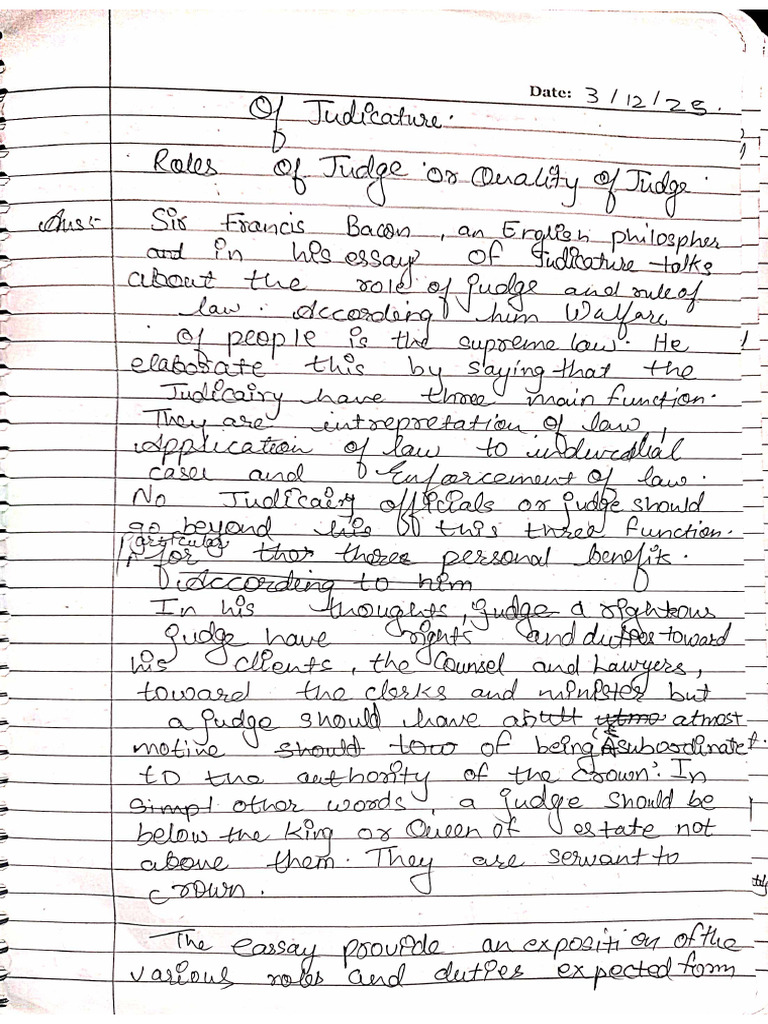 Date: 3/12/25.
Of Judicature.
Roles of Judge or Quality of Judge.
Ans:- Sir Francis Bacon, an English philospher
and in his essay of Judicature talks
about the role of judge and rule of
law. According him Walfare
of people is the supreme law. He
elaborate this by saying that the
Judicairy have three main function.
They are intrepretation of law,
Application of law to indivedial
cases and Enforcement of law.
No Judicairy officials or judge should
go beyond his this three function.
particular
for thor there personal benefits.
According to him
In his thoughts, judge a righteous
judge have rights and duties toward
his clients, the Counsel and Lawyers,
toward the clerks and minister but
a judge should have a utmo atmost
motive should tow of being subordinate
to the authority of the crown. In
simpl other words, a judge should be
below the King or Queen of estate not
above them. They are servant to
crown.
The eassay provide an exposition of the
various roles and duties expected form